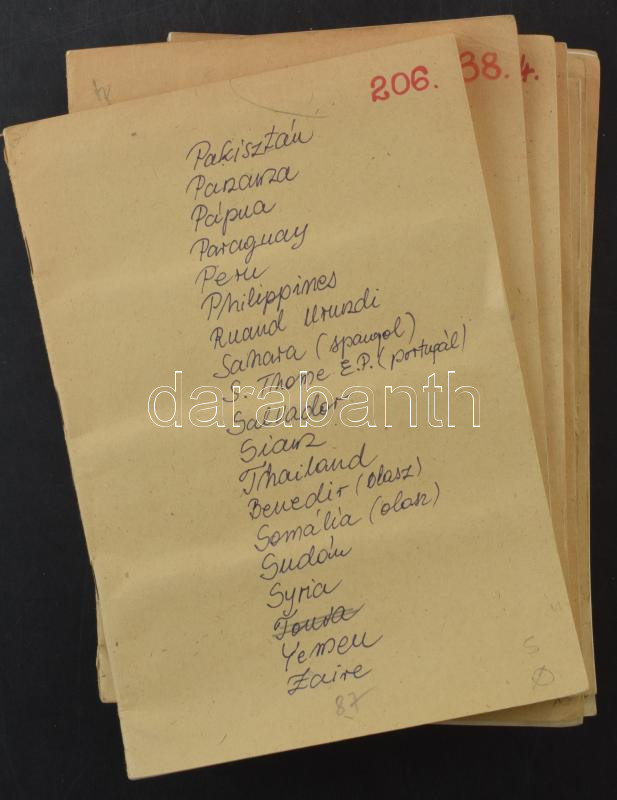 206. 38. 4.
Pakisztán
Panama
Pápua
Paraguay
Peru
Philippines
Ruand Urundi
Sahara (spanyol)
S. Thome E.P. (portugál)
Salvador
Siam
Thailand
Benedir (olasz)
Somália (olasz)
Sudán
Syria
Tonga
Yemen
Zaire
87
darabanth